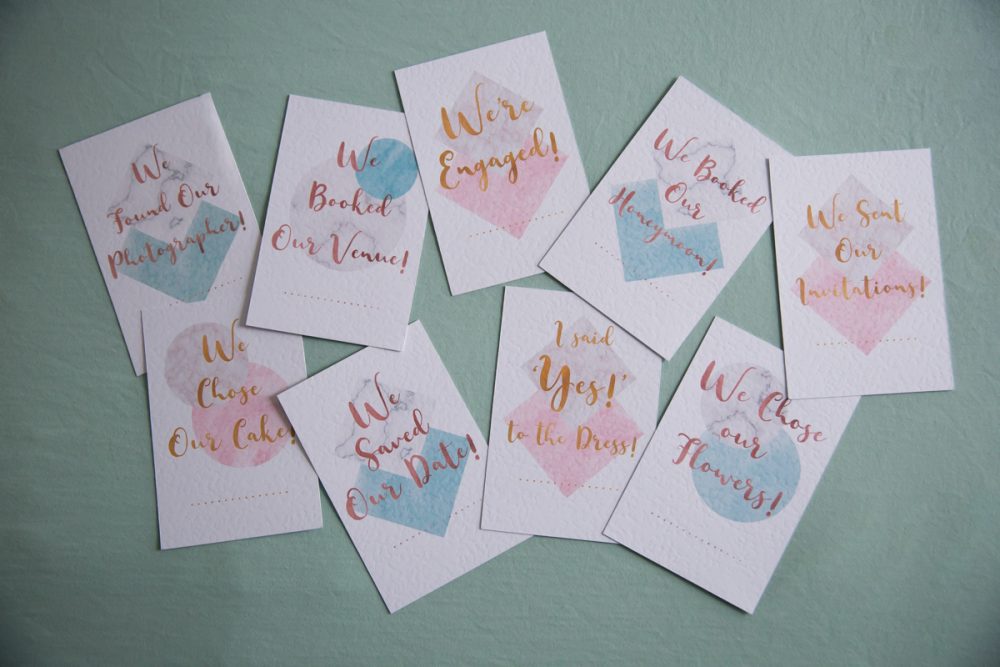 We
Found Our
Photographer!
We
Booked
Our Venue!
We're
Engaged!
We Booked
Our
Honeymoon!
We Sent
Our
Invitations!
We
Chose
Our Cake!
We
Saved
Our Date!
I said
'Yes!'
to the Dress!
We Chose
our
Flowers!